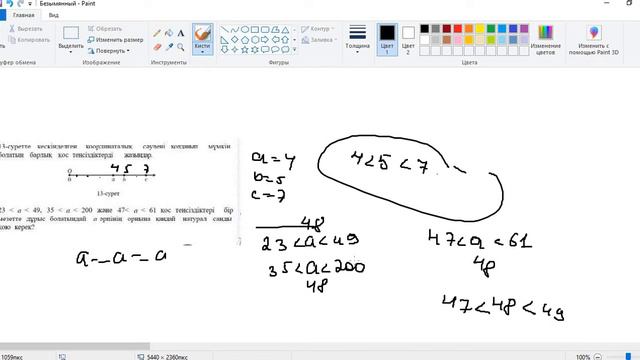 Безымянный - Paint
Вырезать
Копировать
Выделить
Изменить размер
Повернуть
Кисти
Контур
Заливка
Толщина
Цвет 1
Цвет 2
Изменение цветов
Изменить с помощью Paint 3D
Буфер обмена
Изображение
Инструменты
Фигуры
Цвета
13-суретте кескінделген координаталық сәулені қолданып мүмкін
болатын барлық қос теңсіздіктерді жазыңдар.
4 5 7
O
a b c
13-сурет
23 < a < 49, 35 < a < 200 және 47 < a < 61 қос теңсіздіктері бір
мезетте дұрыс болатындай a әрпінің орнына қандай натурал санды
қою керек?
a – a – a
a = 4
b = 5
c = 7
4 < 5 < 7
48
23 < a < 49
35 < a < 200
48
47 < a < 61
48
47 < 48 < 49
1059пкс
5440 × 2360пкс